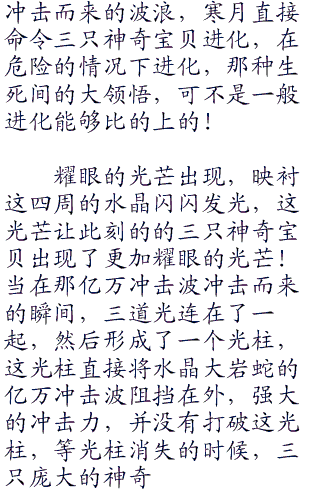 冲击而来的波浪，寒月直接
命令三只神奇宝贝进化，在
危险的情况下进化，那种生
死间的大领悟，可不是一般
进化能够比的上的！
耀眼的光芒出现，映衬
这四周的水晶闪闪发光，这
光芒让此刻的的三只神奇宝
贝出现了更加耀眼的光芒！
当在那亿万冲击波冲击而来
的瞬间，三道光连在了一
起，然后形成了一个光柱，
这光柱直接将水晶大岩蛇的
亿万冲击波阻挡在外，强大
的冲击力，并没有打破这光
柱，等光柱消失的时候，三
只庞大的神奇